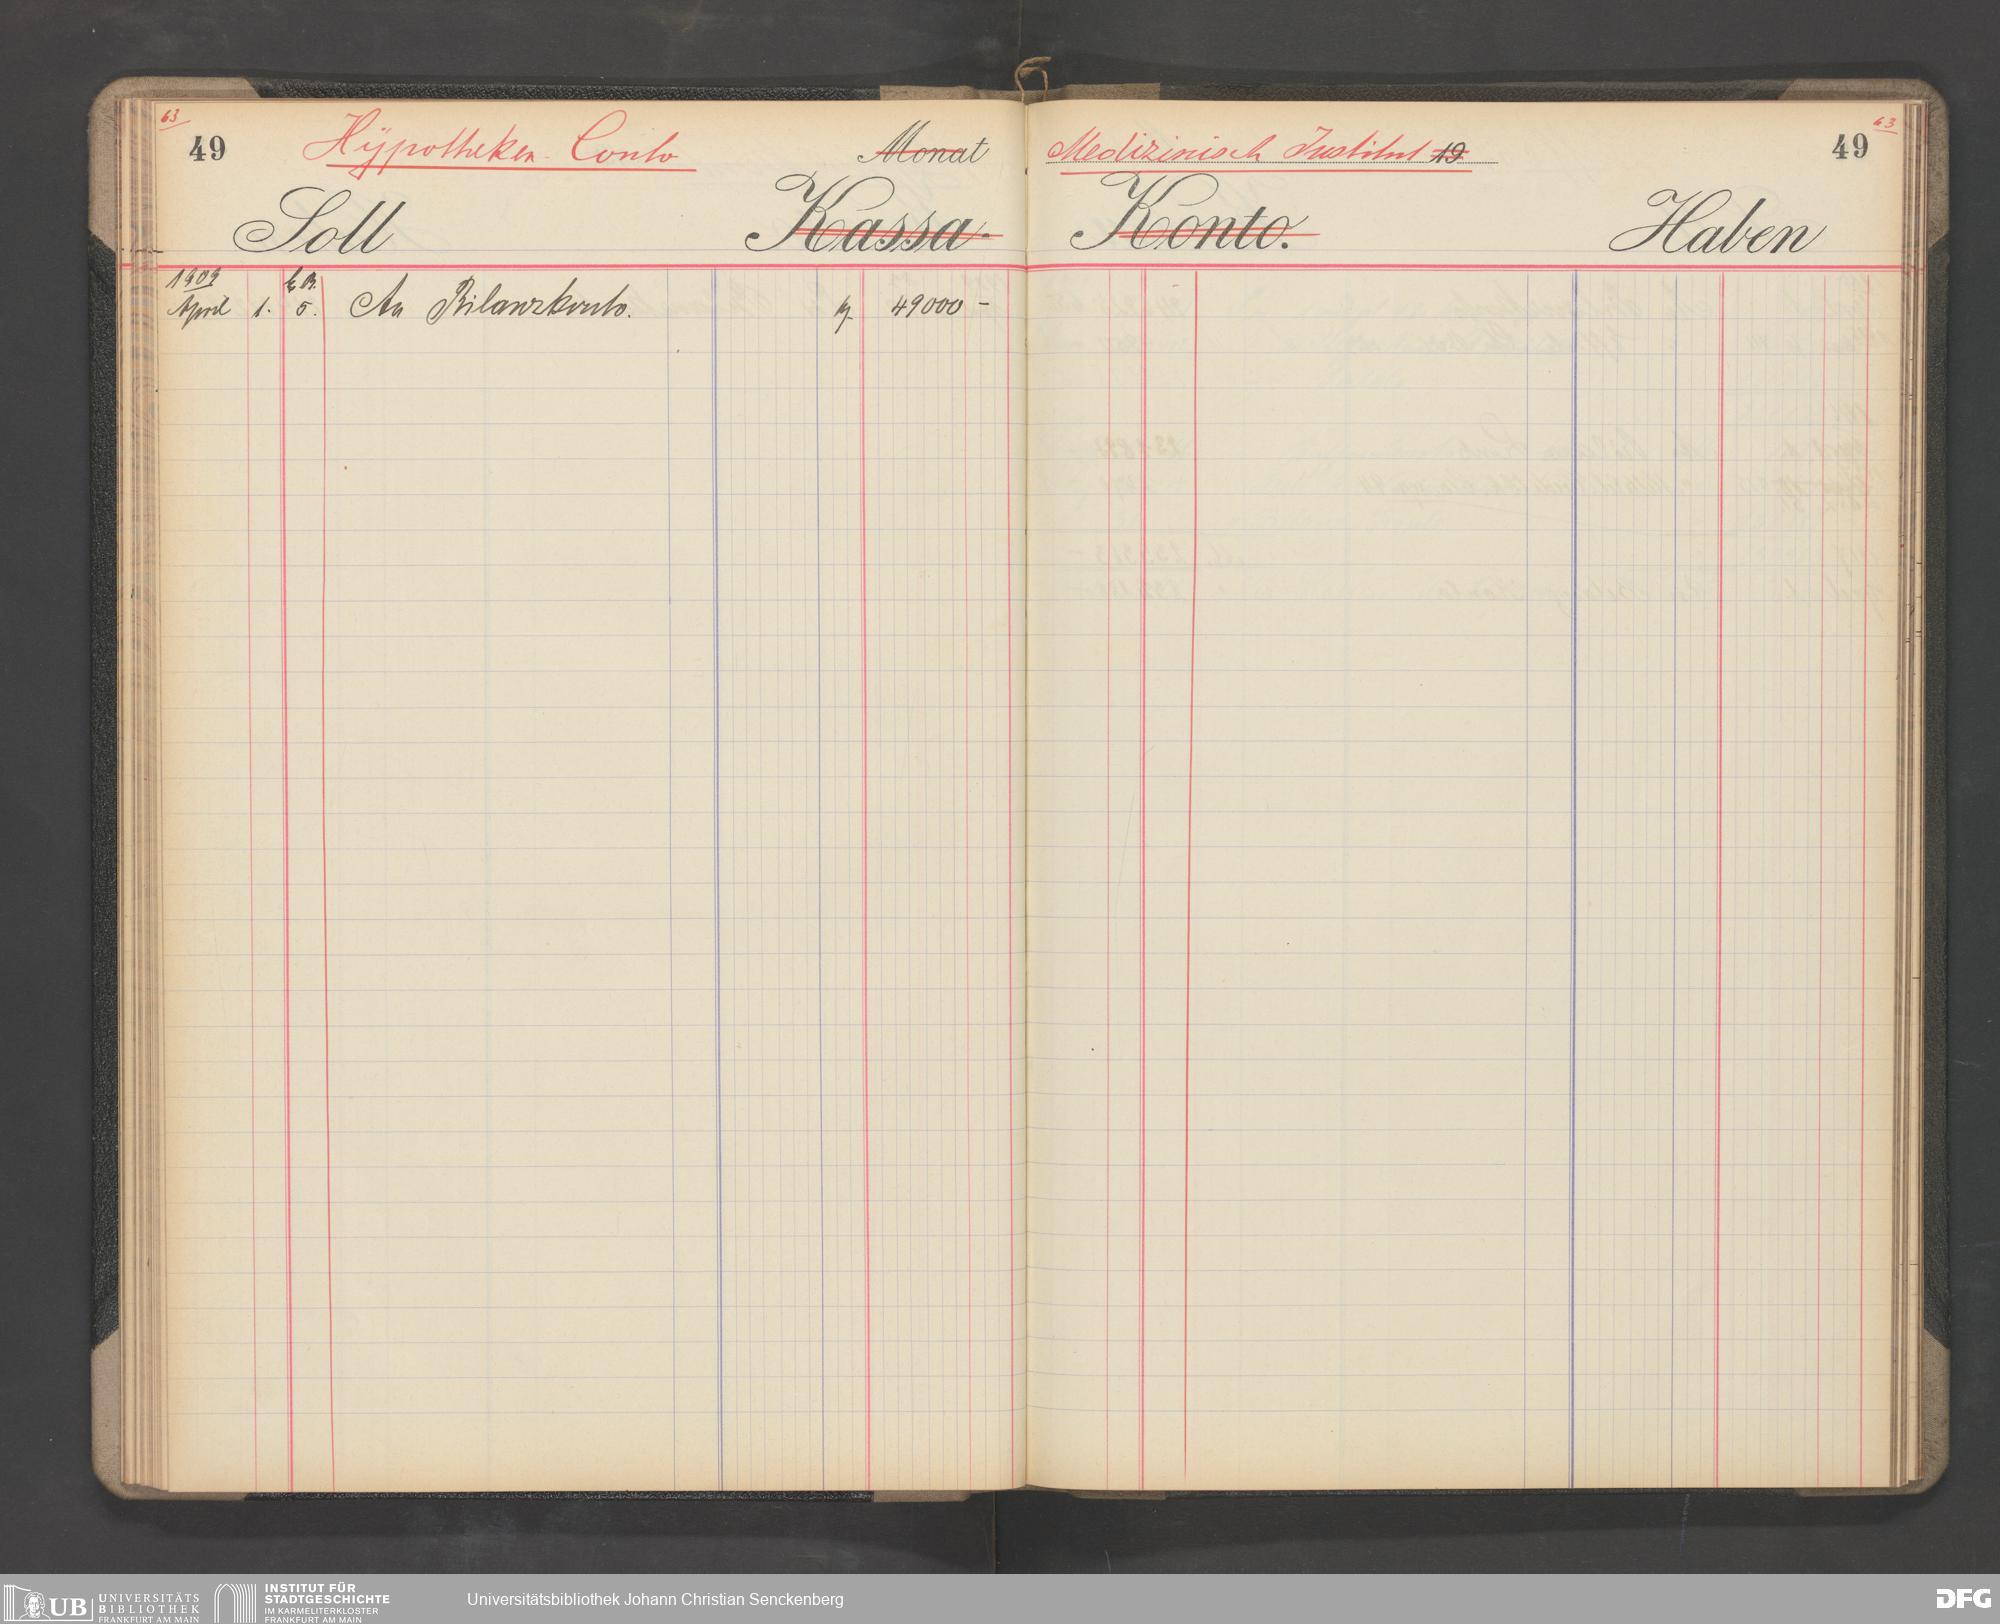 63
49 Hÿpotheken-Conto Monat Medizinisch Institut 19 49
63
Soll Kassa- Konto. Haben
1909
April 1. 5. An Bilanzkonto. 49000 -
UB UNIVERSITÄTS BIBLIOTHEK FRANKFURT AM MAIN
INSTITUT FÜR STADTGESCHICHTE IM KARMELITERKLOSTER FRANKFURT AM MAIN
Universitätsbibliothek Johann Christian Senckenberg
DFG